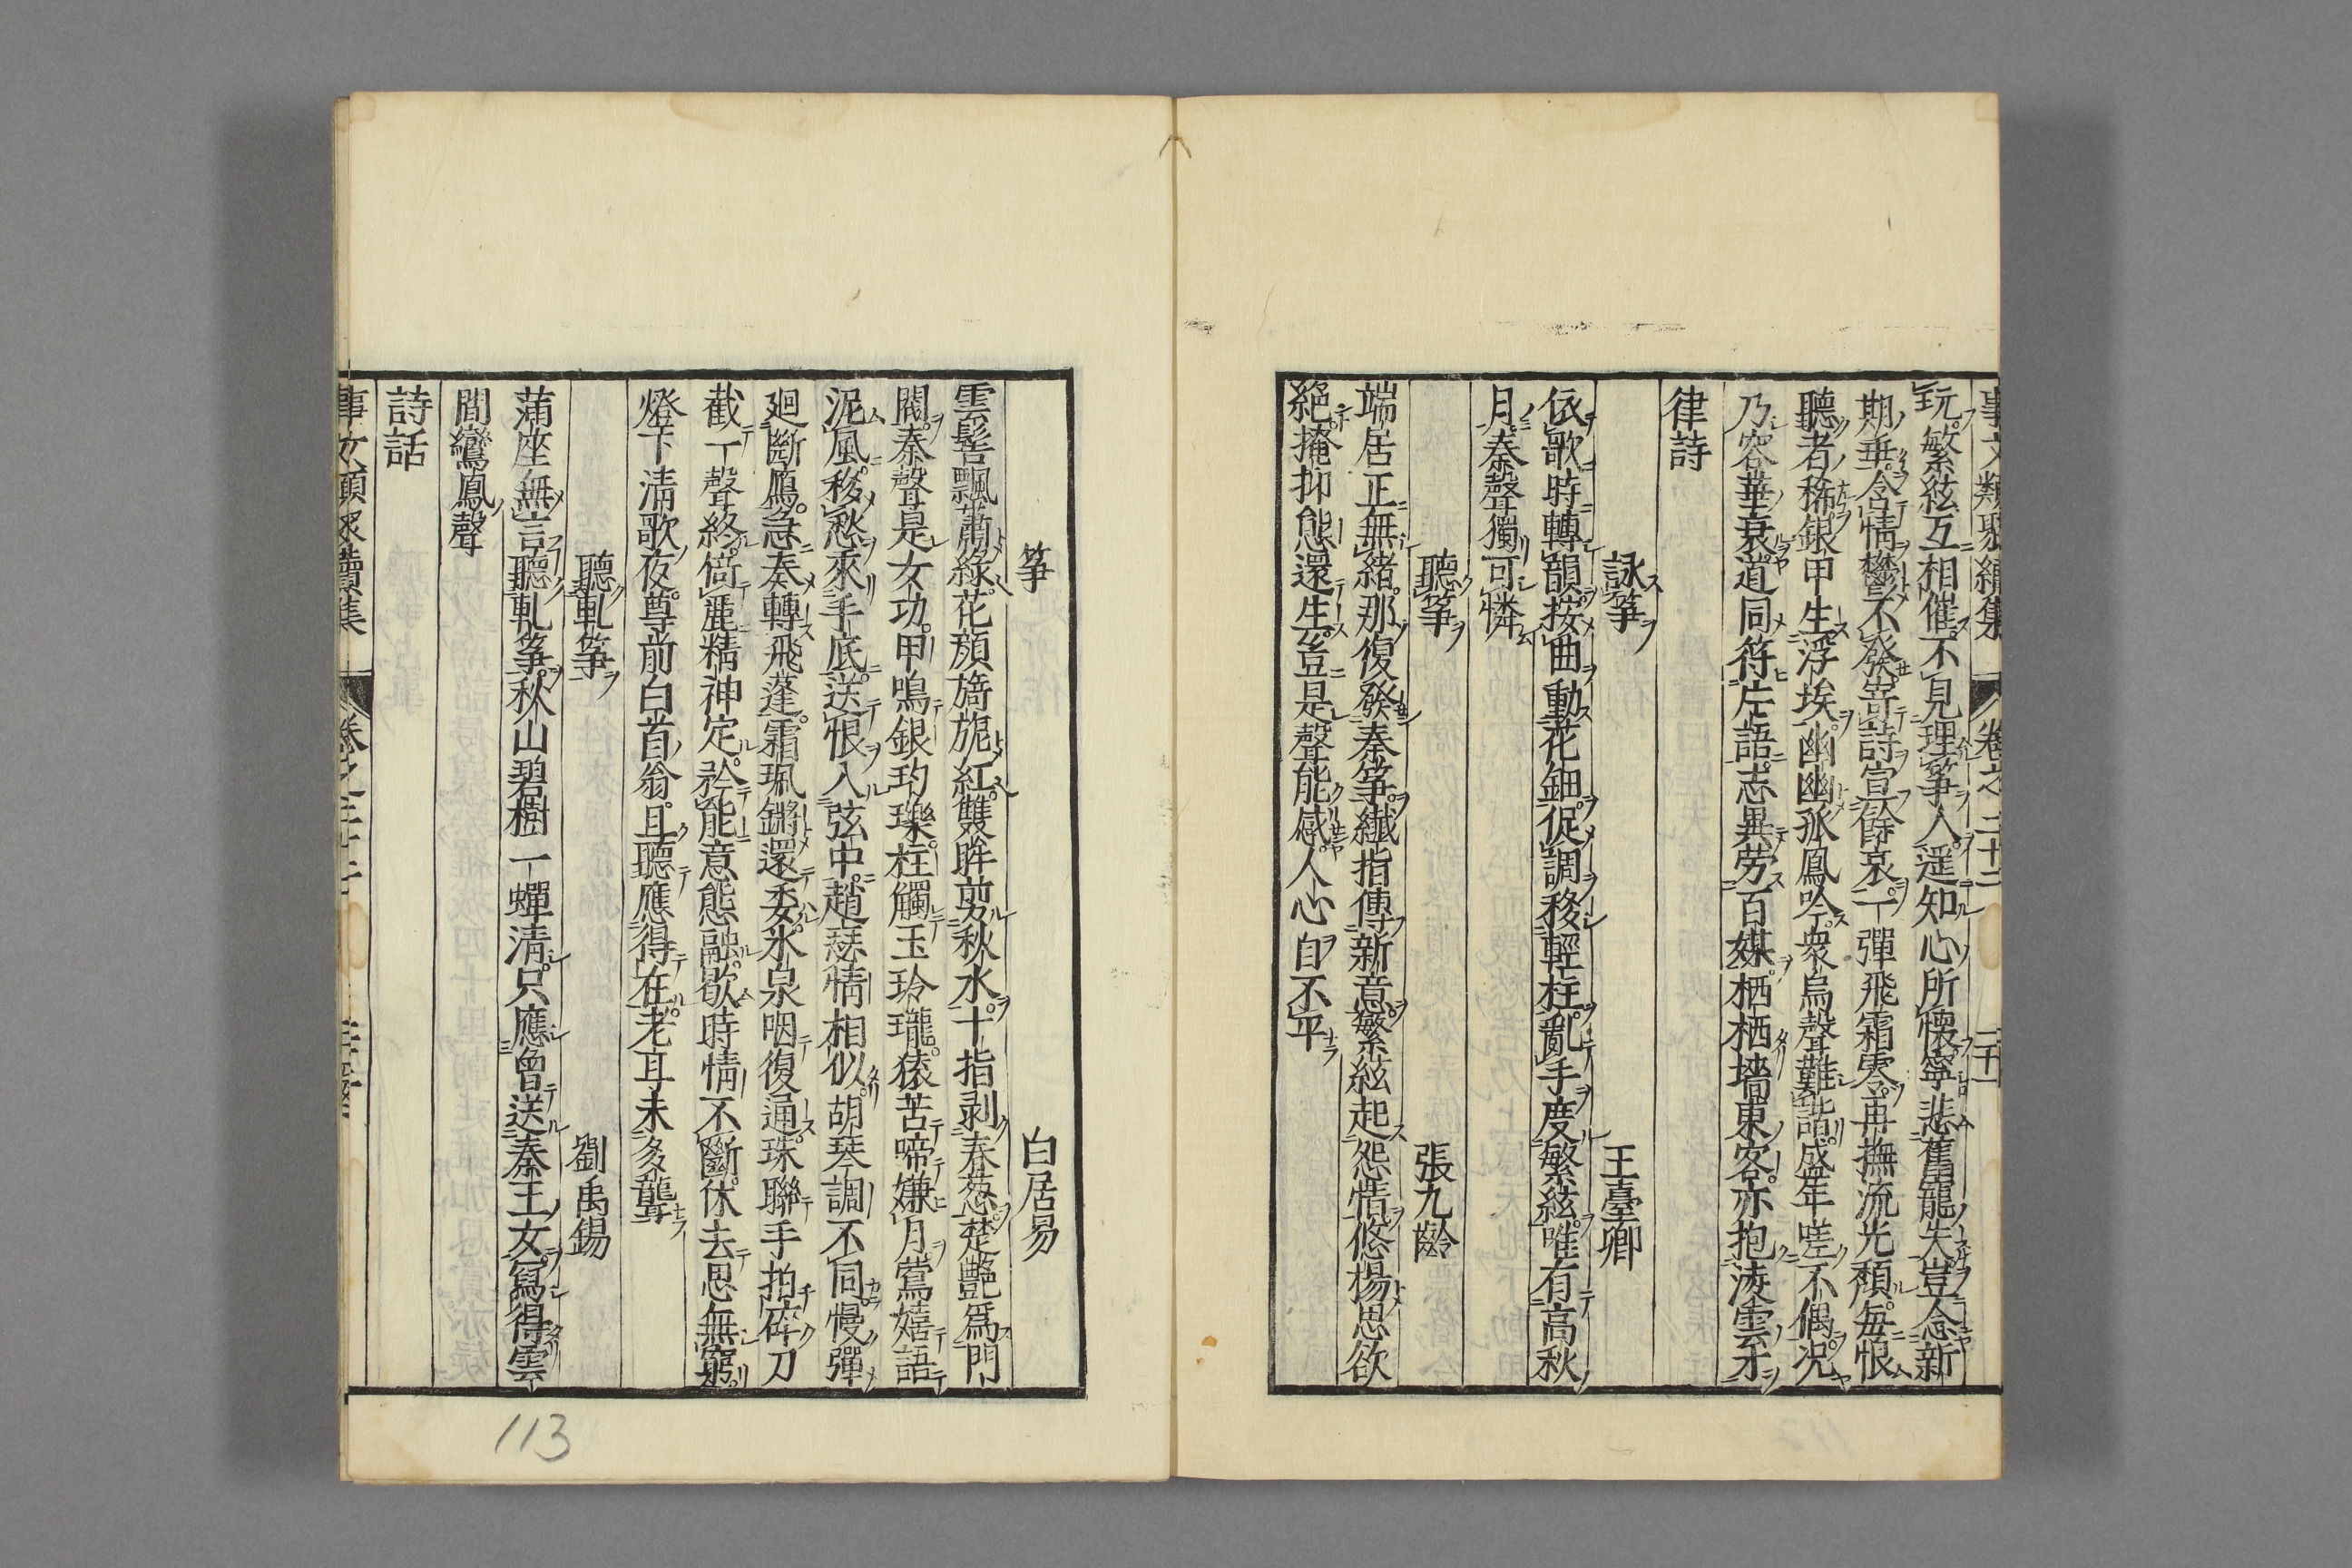 玩繁絃互相催不見理筝人遥知心所懐寧悲舊寵失豈念新
期垂含情鬱不發寄詩宣餘哀一彈飛霜零再撫流光頽毎恨
聽者稀銀甲生浮埃幽幽孤鳳吟衆鳥聲難諧盛年嗟不偶况
乃容華衰道同符片語志異勞百媒栖栖墻東客亦抱淩雲才
律詩
詠筝 王臺卿
依歌時轉韻按曲動花鈿促調移輕柱亂手度繁絃唯有高秋
月秦聲獨可憐
聽筝 張九齡
端居正無緒那復發秦筝纎指傳新意繁絃起怨情悠楊思欲
絶掩抑態還生豈是聲能感人心自不平
筝 白居易
雲髻飄蕭綠花顔旖旎紅雙眸剪秋水十指剥春葱楚艶爲門
閥秦聲是女功甲鳴銀玓瓅柱觸玉玲瓏猿苦啼嫌月鶯嬉語
泥風移愁來手底送恨入弦中趙瑟情相似胡琴調不同慢彈
廻斷鴈急奏轉飛蓬霜珮鏘還委氷泉咽復通珠聯手拍碎刀
截一聲終倚麗精神定矜能意態融歇時情不斷休去思無窮
燈下清歌夜尊前白首翁且聽應得在老耳未多聾
聽軋筝 劉禹錫
蒲座無言聽軋筝秋山碧樹一蟬清只應曾送秦王女寫得雲
間鸞鳳聲
詩話